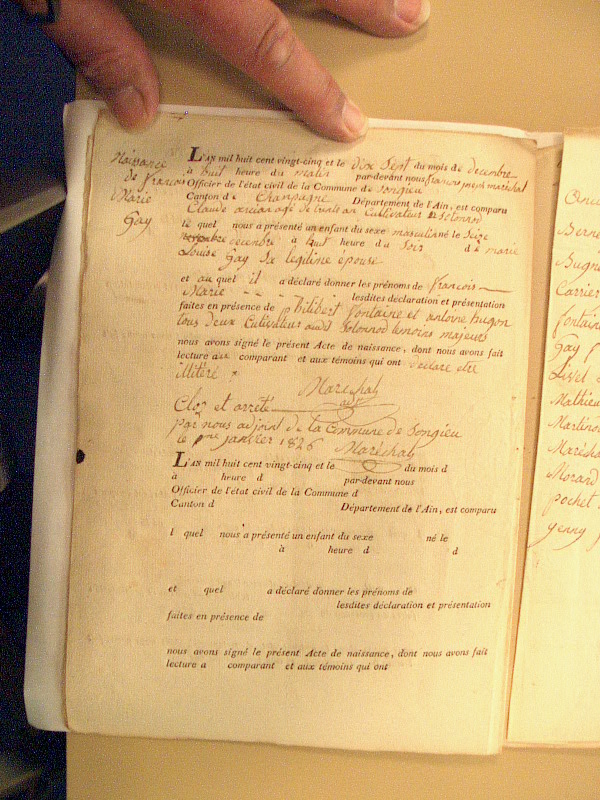 Naissance
de François
Marie
Gay
L'AN mil huit cent vingt-cinq et le dix Sept du mois de decembre
à huit heure du matin par-devant nous françois joseph maréchal
Officier de l'état civil de la Commune de Songieu
Canton de Champagne Département de l'Ain, est comparu
Claude age de trente an Cultivateur a Solonnod
le quel nous a présenté un enfant du sexe masculin né le Seize
decembre à huit heure du Soir d e marie
Louise Gay Sa legitime épouse
et au quel il a déclaré donner les prénoms de françois
Marie lesdites déclaration et présentation
faites en présence de philibert fontaine et antoine hugon
tous deux Cultivateur audit Solonnod temoins majeurs
nous avons signé le présent Acte de naissance, dont nous avons fait
lecture aux comparant et aux témoins qui ont déclaré etre
illiteré
Maréchal
adjt
Clos et arrêté
par nous adjoint de la Commune de Songieu
le 1er janvier 1826 Maréchal
L'AN mil huit cent vingt-cinq et le du mois d
à heure d par-devant nous
Officier de l'état civil de la Commune d
Canton d Département de l'Ain, est comparu
l quel nous a présenté un enfant du sexe né le
à heure d d
et quel a déclaré donner les prénoms de
lesdites déclaration et présentation
faites en présence de
nous avons signé le présent Acte de naissance, dont nous avons fait
lecture a comparant et aux témoins qui ont
Berne
Bugne
Carrier
fontaine
Gay
Livet
Mathieu
Martinod
Marécha
Morard
pochet
yenny